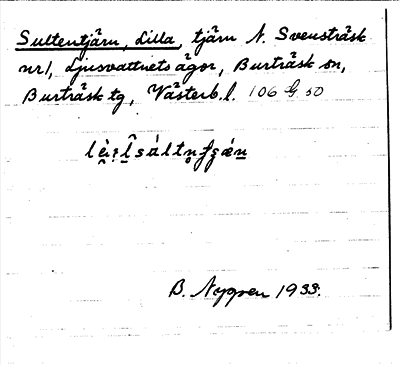 Sultentjärn, Lilla, tjärn N. Svensträsk
nr 1, Ljusvattnets ägor, Burträsk sn,
Burträsk tg, Västerb. l. 106 G 50
B. Nygren 1933.